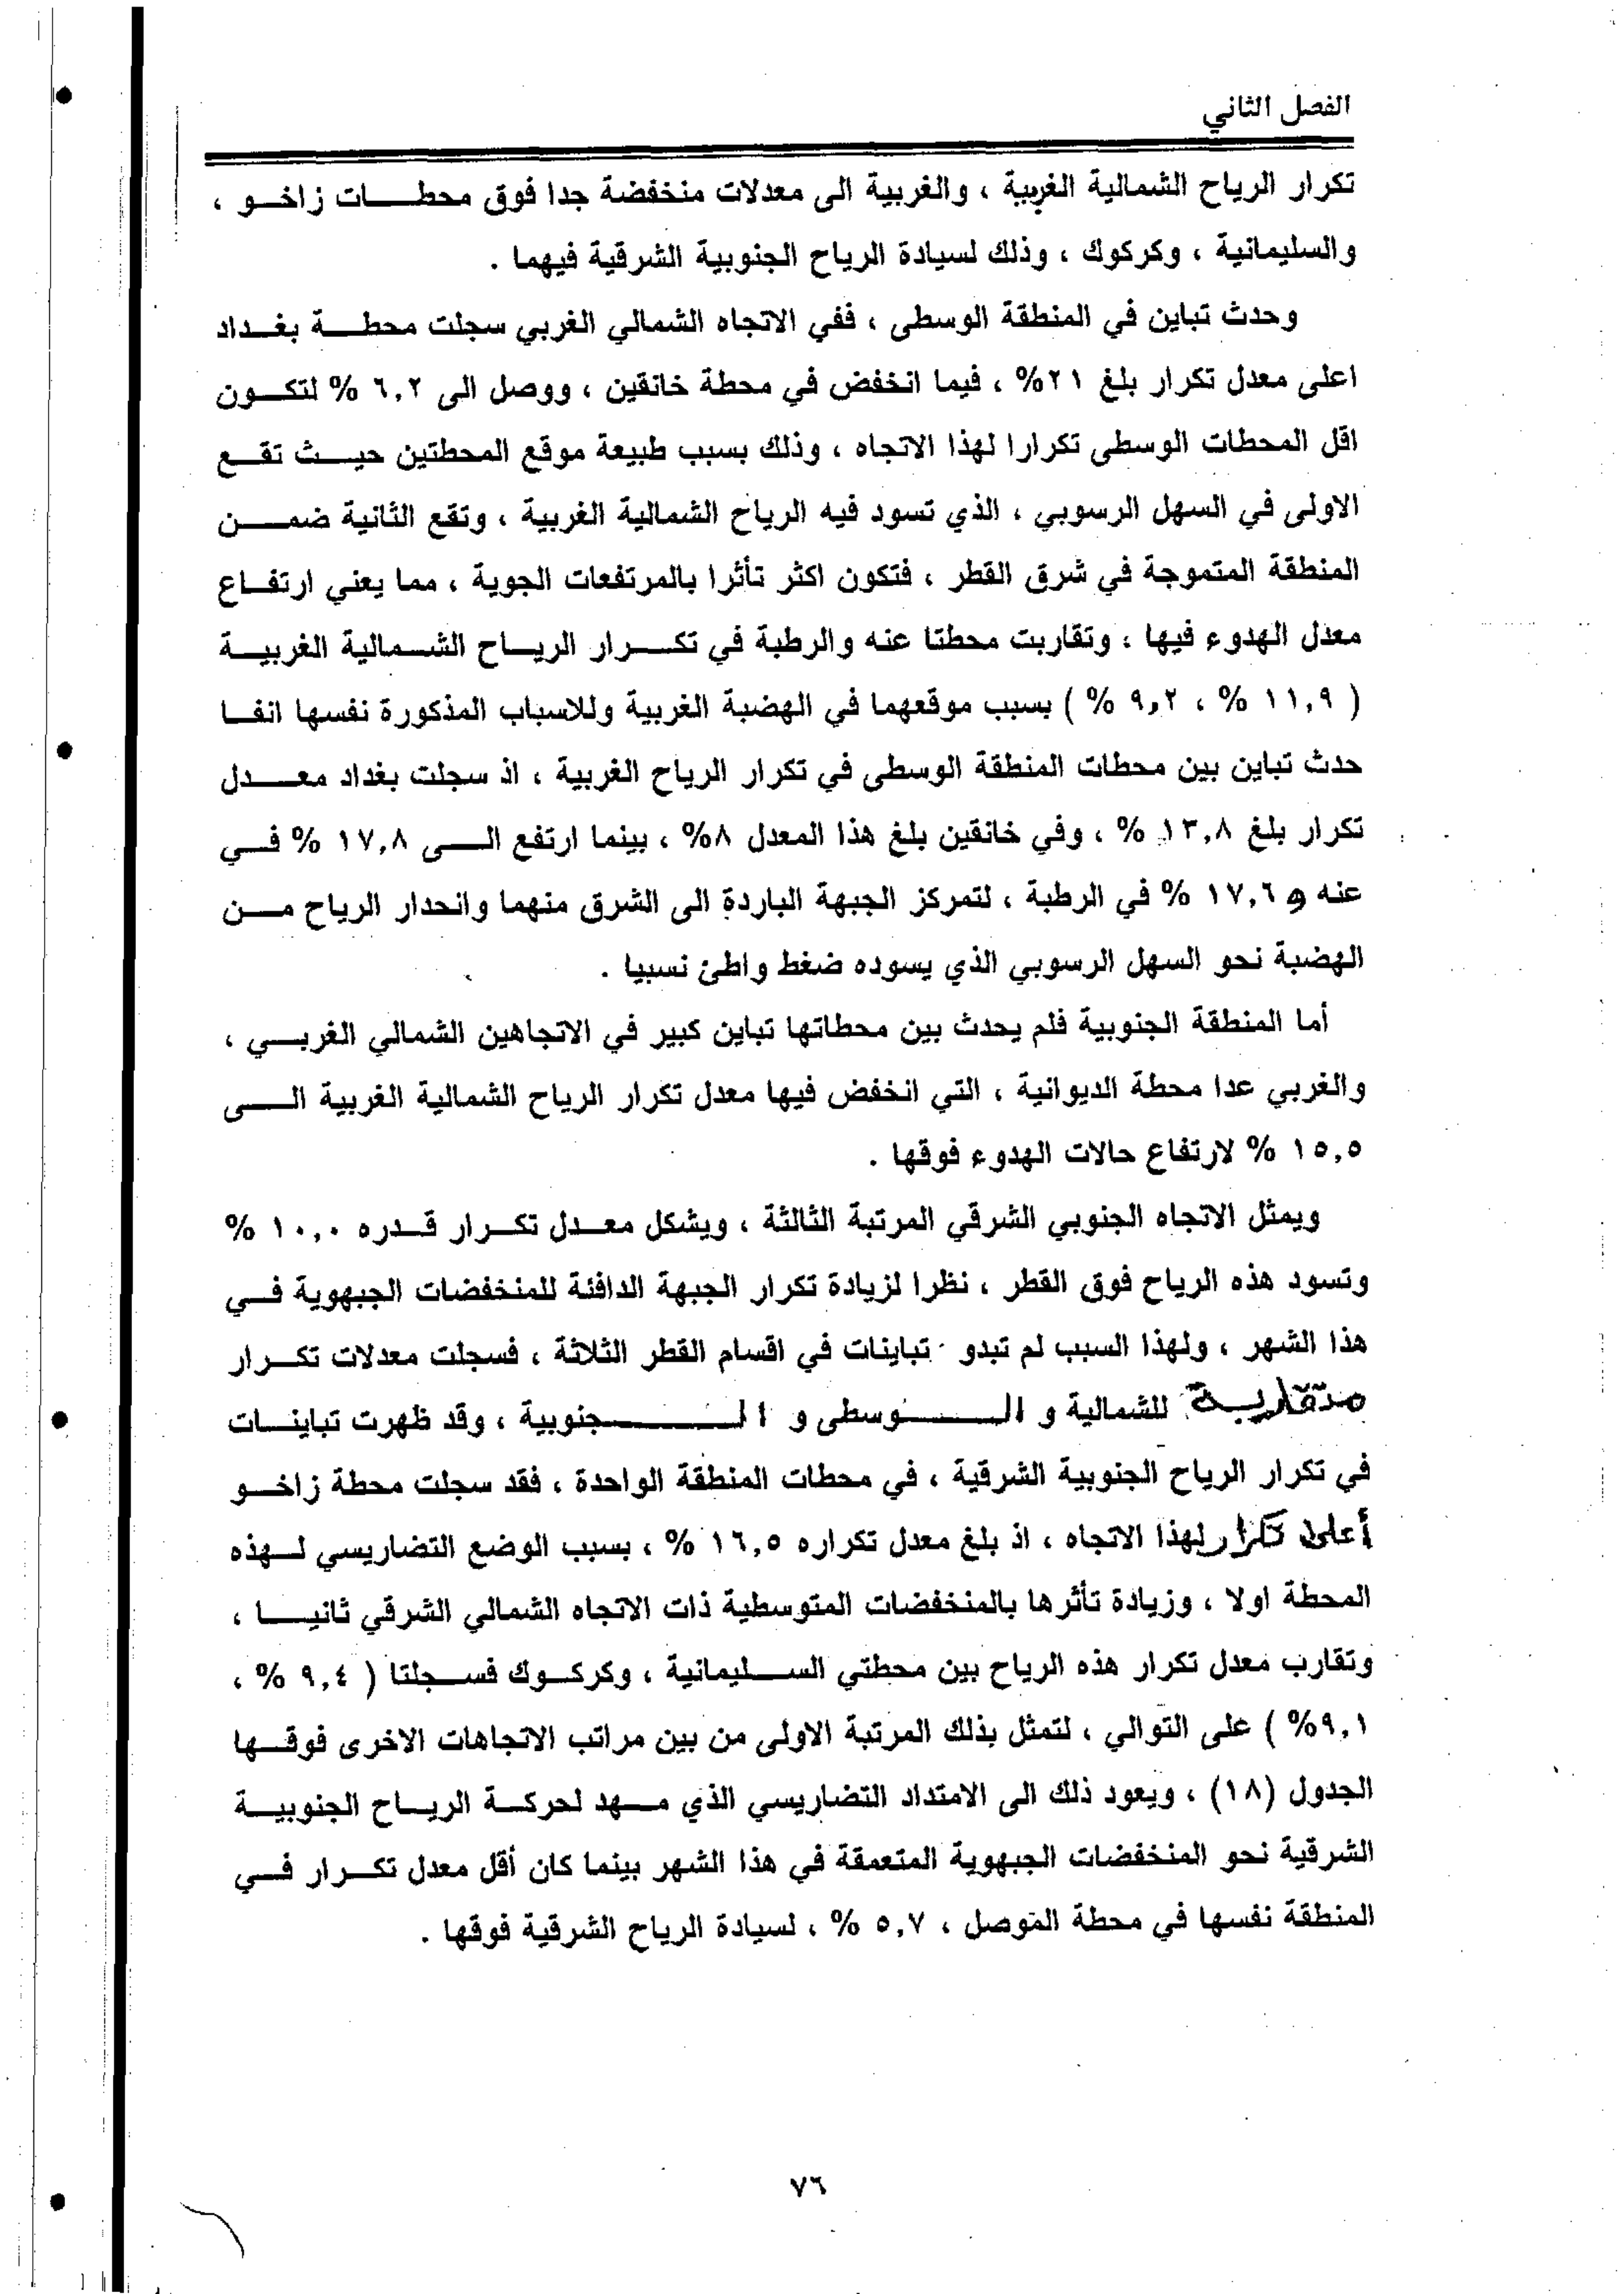 الفصل الثاني
تكرار الرياح الشمالية الغربية ، والغربية الى معدلات منخفضة جدا فوق محطات زاخو ،
والسليمانية ، وكركوك ، وذلك لسيادة الرياح الجنوبية الشرقية فيهما .
وحدث تباين في المنطقة الوسطى ، ففي الاتجاه الشمالي الغربي سجلت محطة بغداد
اعلى معدل تكرار بلغ ٢١% ، فيما انخفض في محطة خانقين ، ووصل الى ٦,٢ % لتكون
اقل المحطات الوسطى تكرارا لهذا الاتجاه ، وذلك بسبب طبيعة موقع المحطتين حيث تقع
الاولى في السهل الرسوبي ، الذي تسود فيه الرياح الشمالية الغربية ، وتقع الثانية ضمن
المنطقة المتموجة في شرق القطر ، فتكون اكثر تأثرا بالمرتفعات الجوية ، مما يعني ارتفاع
معدل الهدوء فيها ، وتقاربت محطتا عنه والرطبة في تكرار الرياح الشمالية الغربية
( ١١,٩ % ، ٩,٢ % ) بسبب موقعهما في الهضبة الغربية وللاسباب المذكورة نفسها انفا
حدث تباين بين محطات المنطقة الوسطى في تكرار الرياح الغربية ، اذ سجلت بغداد معدل
تكرار بلغ ١٣,٨ % ، وفي خانقين بلغ هذا المعدل ٨% ، بينما ارتفع الى ١٧,٨ % في
عنه و ١٧,٦ % في الرطبة ، لتمركز الجبهة الباردة الى الشرق منهما وانحدار الرياح من
الهضبة نحو السهل الرسوبي الذي يسوده ضغط واطئ نسبيا .
أما المنطقة الجنوبية فلم يحدث بين محطاتها تباين كبير في الاتجاهين الشمالي الغربي ،
والغربي عدا محطة الديوانية ، التي انخفض فيها معدل تكرار الرياح الشمالية الغربية الى
١٥,٥ % لارتفاع حالات الهدوء فوقها .
ويمثل الاتجاه الجنوبي الشرقي المرتبة الثالثة ، ويشكل معدل تكرار قدره ١٠,٠ %
وتسود هذه الرياح فوق القطر ، نظرا لزيادة تكرار الجبهة الدافئة للمنخفضات الجبهوية في
هذا الشهر ، ولهذا السبب لم تبدو تباينات في اقسام القطر الثلاثة ، فسجلت معدلات تكرار
متقاربة للشمالية و الوسطى و الجنوبية ، وقد ظهرت تباينات
في تكرار الرياح الجنوبية الشرقية ، في محطات المنطقة الواحدة ، فقد سجلت محطة زاخو
أعلى تكرار لهذا الاتجاه ، اذ بلغ معدل تكراره ١٦,٥ % ، بسبب الوضع التضاريسي لهذه
المحطة اولا ، وزيادة تأثرها بالمنخفضات المتوسطية ذات الاتجاه الشمالي الشرقي ثانيا ،
وتقارب معدل تكرار هذه الرياح بين محطتي السليمانية ، وكركوك فسجلتا ( ٩,٤ % ،
٩,١% ) على التوالي ، لتمثل بذلك المرتبة الاولى من بين مراتب الاتجاهات الاخرى فوقها
الجدول (١٨) ، ويعود ذلك الى الامتداد التضاريسي الذي مهد لحركة الرياح الجنوبية
الشرقية نحو المنخفضات الجبهوية المتعمقة في هذا الشهر بينما كان أقل معدل تكرار في
المنطقة نفسها في محطة الموصل ، ٥,٧ % ، لسيادة الرياح الشرقية فوقها .
٧٦